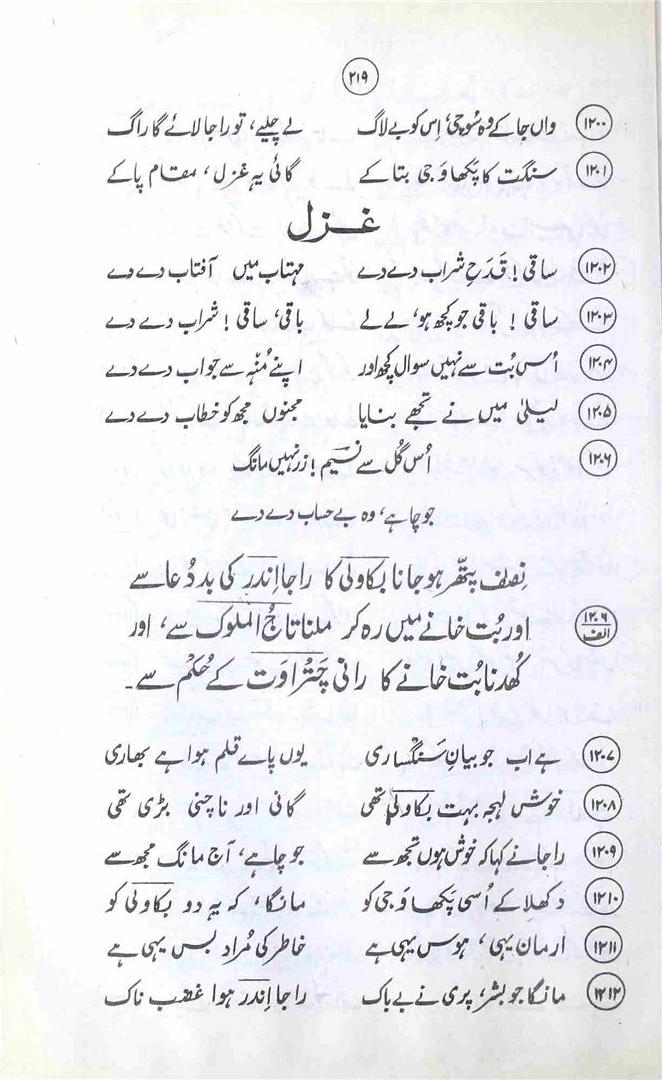 ۲۱۹
۱۲۰۰ واں جا کے وہ سُوچی، اِس کو بے لاگ لے چلیے، تو راجا لائے گا راگ
۱۲۰۱ سنگت کا پَکھاوَجی بتا کے گائی یہ غزل، مقام پا کے
غزل
۱۲۰۲ ساقی! قَدَحِ شراب دے دے مہتاب میں آفتاب دے دے
۱۲۰۳ ساقی! باقی جو کچھ ہو، لے لے باقی، ساقی! شراب دے دے
۱۲۰۴ اُس بُت سے نہیں سوال کچھ اور اپنے مُنہ سے جواب دے دے
۱۲۰۵ لیلیٰ میں نے تجھے بنایا مجنوں مجھ کو خطاب دے دے
۱۲۰۶ اُس گُل سے نسیم! زر نہیں مانگ
جو چاہے، وہ بے حساب دے دے
نِصف پتّھر ہو جانا بکاولی کا راجا اِندر کی بد دُعا سے
۱۲۰۶ الف اور بُت خانے میں رہ کر ملنا تاجُ الملوک سے، اور
کُھدنا بُت خانے کا رانی چَتْراوَت کے حُکم سے۔
۱۲۰۷ ہے اب جو بیانِ سَنگساری یوں پاے قلم ہوا ہے بھاری
۱۲۰۸ خوش لہجہ بہت بکاولی تھی گانی اور ناچنی بڑی تھی
۱۲۰۹ راجا نے کہا کہ خوش ہوں تجھ سے جو چاہے، آج مانگ مجھ سے
۱۲۱۰ دکھلا کے اُسی پَکھاوَجی کو مانگا، کہ یہ دو بکاولی کو
۱۲۱۱ ارمان یہی، ہوس یہی ہے خاطر کی مُراد بس یہی ہے
۱۲۱۲ مانگا جو بشر، پری نے بے باک راجا اِندر ہوا غضب ناک